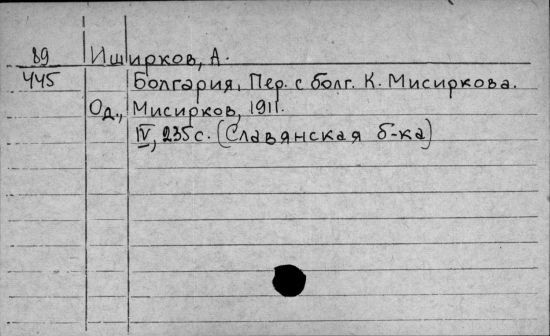 89 Иширков, А.
445 Болгария. Пер. с болг. К. Мисиркова.
Од., Мисирков, 1911.
IV, 235с. (Славянская б-ка)